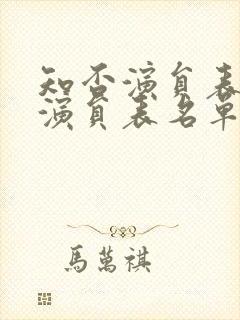 知否演員表
演員表名單
馬萬祺